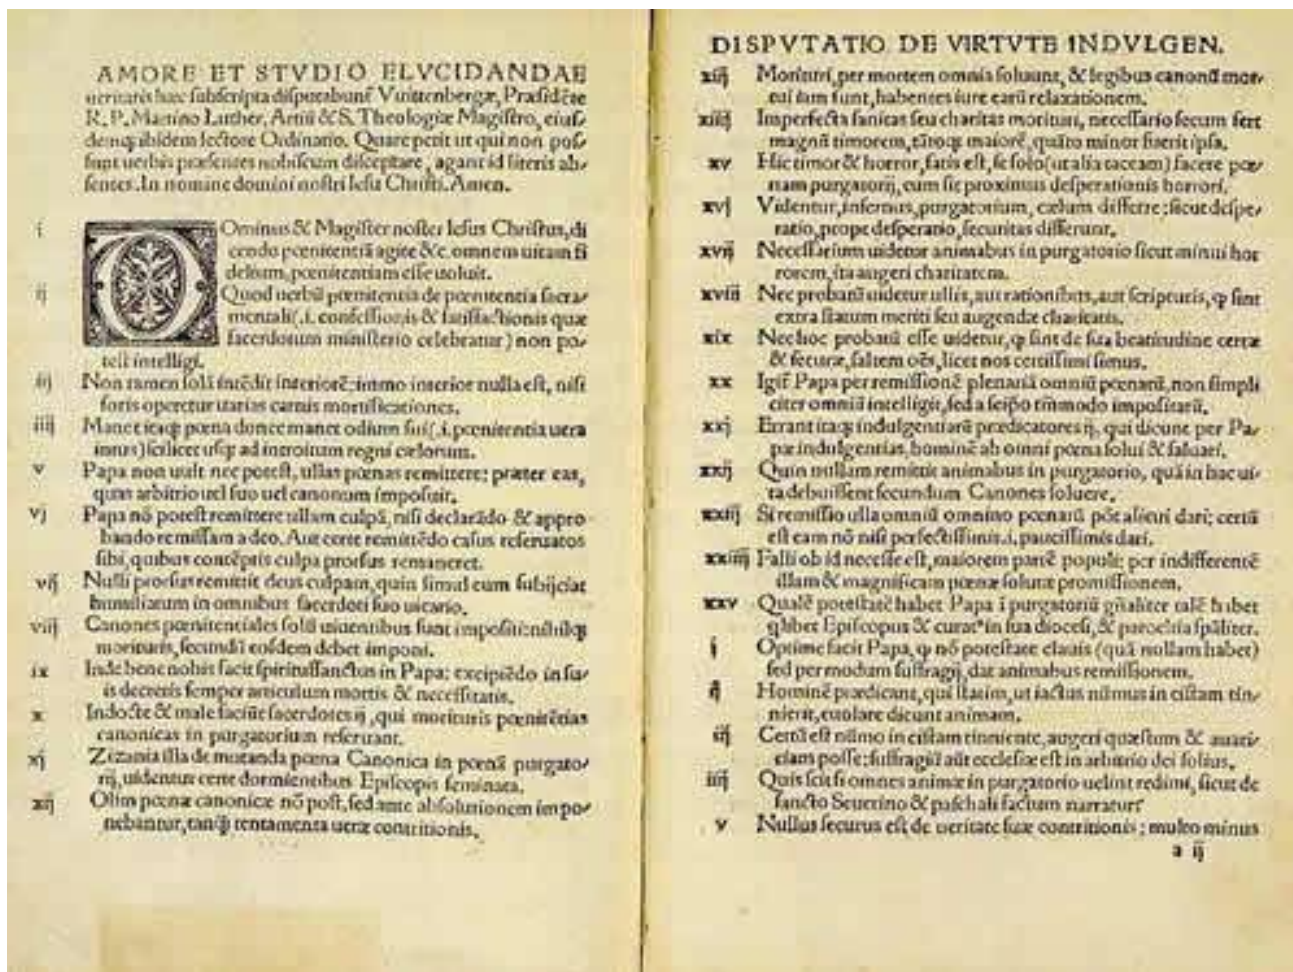 AMORE ET STVDIO ELVCIDANDAE
ueritatis hæc subscripta disputabunť Vuittenbergæ, Præsidēte
R. P. Martino Luther, Artiũ & S. Theologiæ Magistro, eius-
demq; ibidem lectore Ordinario. Quare petit ut qui non pos-
sunt uerbis præsentes nobiscum disceptare, agant id literis ab-
sentes. In nomine domini nostri Iesu Christi. Amen.
i Ominus & Magister noster Iesus Christus, di
cendo pœnitentiā agite &c. omnem uitam fi
delium, pœnitentiam esse uoluit.
ij Quod uerbũ pœnitentia de pœnitentia sacra-
mentali (.i. confessionis & satisfactionis quæ
sacerdotum ministerio celebratur) non po-
test intelligi.
iij Non tamen solā intēdit interiorē: immo interior nulla est, nisi
foris operetur uarias carnis mortificationes.
iiij Manet itaq; pœna donec manet odium sui (.i. pœnitentia uera
intus) scilicet usq; ad introitum regni cælorum.
v Papa non uult nec potest, ullas pœnas remittere: præter eas,
quas arbitrio uel suo uel canonum imposuit.
vj Papa nō potest remittere ullam culpā, nisi declarādo & appro
bando remissam a deo. Aut certe remittēdo casus reseruatos
sibi, quibus contēptis culpa prorsus remaneret.
vij Nulli prorsus remittit deus culpam, quin simul eum subijciat
humiliatum in omnibus sacerdoti suo uicario.
viij Canones pœnitentiales solũ uiuentibus sunt impositi: nihilq;
morituris, secundũ eosdem debet imponi.
ix Inde bene nobis facit spiritussanctus in Papa: excipiēdo in su-
is decretis semper articulum mortis & necessitatis.
x Indocte & male faciũt sacerdotes ij, qui morituris pœnitētias
canonicas in purgatorium reseruant.
xj Zizania illa de mutanda pœna Canonica in pœnā purgato-
rij, uidentur certe dormientibus Episcopis seminata.
xij Olim pœnæ canonicæ nō post, sed ante absolutionem impo-
nebantur, tanq̄ tentamenta ueræ contritionis.
DISPVTATIO DE VIRTVTE INDVLGEN.
xiij Morituri, per mortem omnia soluunt, & legibus canonũ mor-
tui iam sunt, habentes iure earũ relaxationem.
xiiij Imperfecta sanitas seu charitas morituri, necessario secum fert
magnũ timorem, tātoq; maiorē, quāto minor fuerit ipsa.
xv Hic timor & horror, satis est, se solo (ut alia taceam) facere pœ-
nam purgatorij, cum sit proximus desperationis horrori.
xvj Videntur, infernus, purgatorium, cælum differre: sicut despe-
ratio, prope desperatio, securitas differunt.
xvij Necessarium uidetur animabus in purgatorio sicut minui hor
rorem, ita augeri charitatem.
xviij Nec probatũ uidetur ullis, aut rationibus, aut scripturis, q̄ sint
extra statum meriti seu augendæ charitatis.
xix Nec hoc probatũ esse uidetur, q̄ sint de sua beatitudine certæ
& securæ, saltem oēs, licet nos certissimi simus.
xx Igiť Papa per remissionē plenariā omniũ pœnarũ, non simpli
citer omniũ intelligit, sed a seipso tm̄modo impositarũ.
xxj Errant itaq; indulgentiarũ prædicatores ij, qui dicunt per Pa-
pæ indulgentias, hominē ab omni pœna solui & saluari.
xxij Quin nullam remittit animabus in purgatorio, quā in hac ui-
ta debuissent secundum Canones soluere.
xxiij Si remissio ulla omniũ omnino pœnarũ pōt alicui dari: certũ
est eam nō nisi perfectissimis .i. paucissimis dari.
xxiiij Falli ob id necesse est, maiorem partē populi: per indifferentē
illam & magnificam pœnæ solutæ promissionem.
xxv Qualē potestatē habet Papa ī purgatoriũ gñaliter talē habet
qlibet Episcopus & curatꝰ in sua diocesi, & parochia spāliter.
j Optime facit Papa, q̄ nō potestate clauis (quā nullam habet)
sed per modum suffragij, dat animabus remissionem.
ij Hominē prædicant, qui statim, ut iactus nũmus in cistam tin-
nierit, euolare dicunt animam.
iij Certũ est nũmo in cistam tinniente, augeri quæstum & auari-
ciam posse: suffragiũ aũt ecclesiæ est in arbitrio dei solius.
iiij Quis scit si omnes animæ in purgatorio uelint redimi, sicut de
sancto Seuerino & paschali factum narratur?
v Nullus securus est de ueritate suæ contritionis: multo minus
a ij